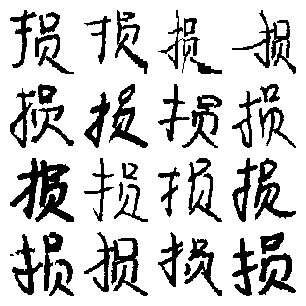 损损损损
损损损损
损损损损
损损损损